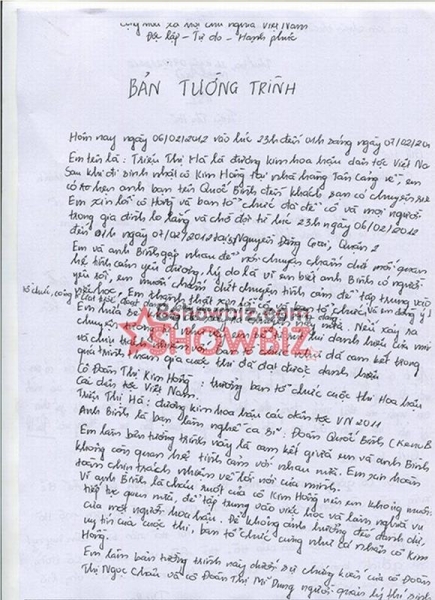 Cộng hòa xã hội chủ nghĩa Việt Nam
Độc lập - Tự do - Hạnh phúc
BẢN TƯỜNG TRÌNH
Hôm nay ngày 06/02/2012 vào lúc 23h đến 01h sáng ngày 07/02/201
Em tên là: Triệu Thị Hà là đương kim hoa hậu dân tộc Việt Na
Sau khi đi sinh nhật cô Kim Hồng tại nhà hàng Tân Cảng về, em
có hẹn anh bạn tên Quốc Bình đến khách sạn có chuyện
Em xin lỗi cô Hồng và ban tổ chức đã để cô và mọi người
trong gia đình lo lắng và chờ đợi từ lúc 23h ngày 06/02/2012
đến 01h ngày 07/02/2012 tại Nguyễn Đăng Giai, Quận 2
Em và anh Bình gặp nhau để nói chuyện chấm dứt mối quan
hệ tình cảm yêu đương, lý do là vì em biết anh Bình có người
yêu rồi, em muốn chấm dứt chuyện tình cảm để tập trung vào
việc học, Em thành thật xin lỗi cô và ban tổ chức và em đồng ý
Em hứa sẽ
8showbiz.com
nữa. Nếu xảy ra
chuyện tương tự
danh hiệu của mình
và chịu trách nhiệm
ban tổ chức
đã cam kết trong
quá trình tham gia cuộc thi đã đạt được danh hiệu
SHOWBIZ
Cô Đoàn Thị Kim Hồng: trưởng ban tổ chức cuộc thi Hoa hậu
các dân tộc Việt Nam.
Triệu Thị Hà: đương kim hoa hậu các dân tộc VN 2011
Anh Bình là bạn làm nghề ca sĩ: Đoàn Quốc Bình (Ken B
Em làm bản tường trình này là cam kết giữa em và anh Bình
không còn quan hệ tình cảm với nhau nữa. Em xin hoàn
toàn chịu trách nhiệm về lời nói của mình.
Vì anh Bình là cháu ruột của cô Kim Hồng nên em không muốn
tiếp tục quen nữa, để tập trung vào việc học và làm nghĩa vụ
của một người hoa hậu. Để không ảnh hưởng đến danh dự,
uy tín của cuộc thi, ban tổ chức cũng như cá nhân cô Kim
Hồng.
Em làm bản tường trình này dưới sự chứng kiến của cô Đoàn
Thị Ngọc Châu và cô Đoàn Thị Mĩ Dung người quản lý thí sinh